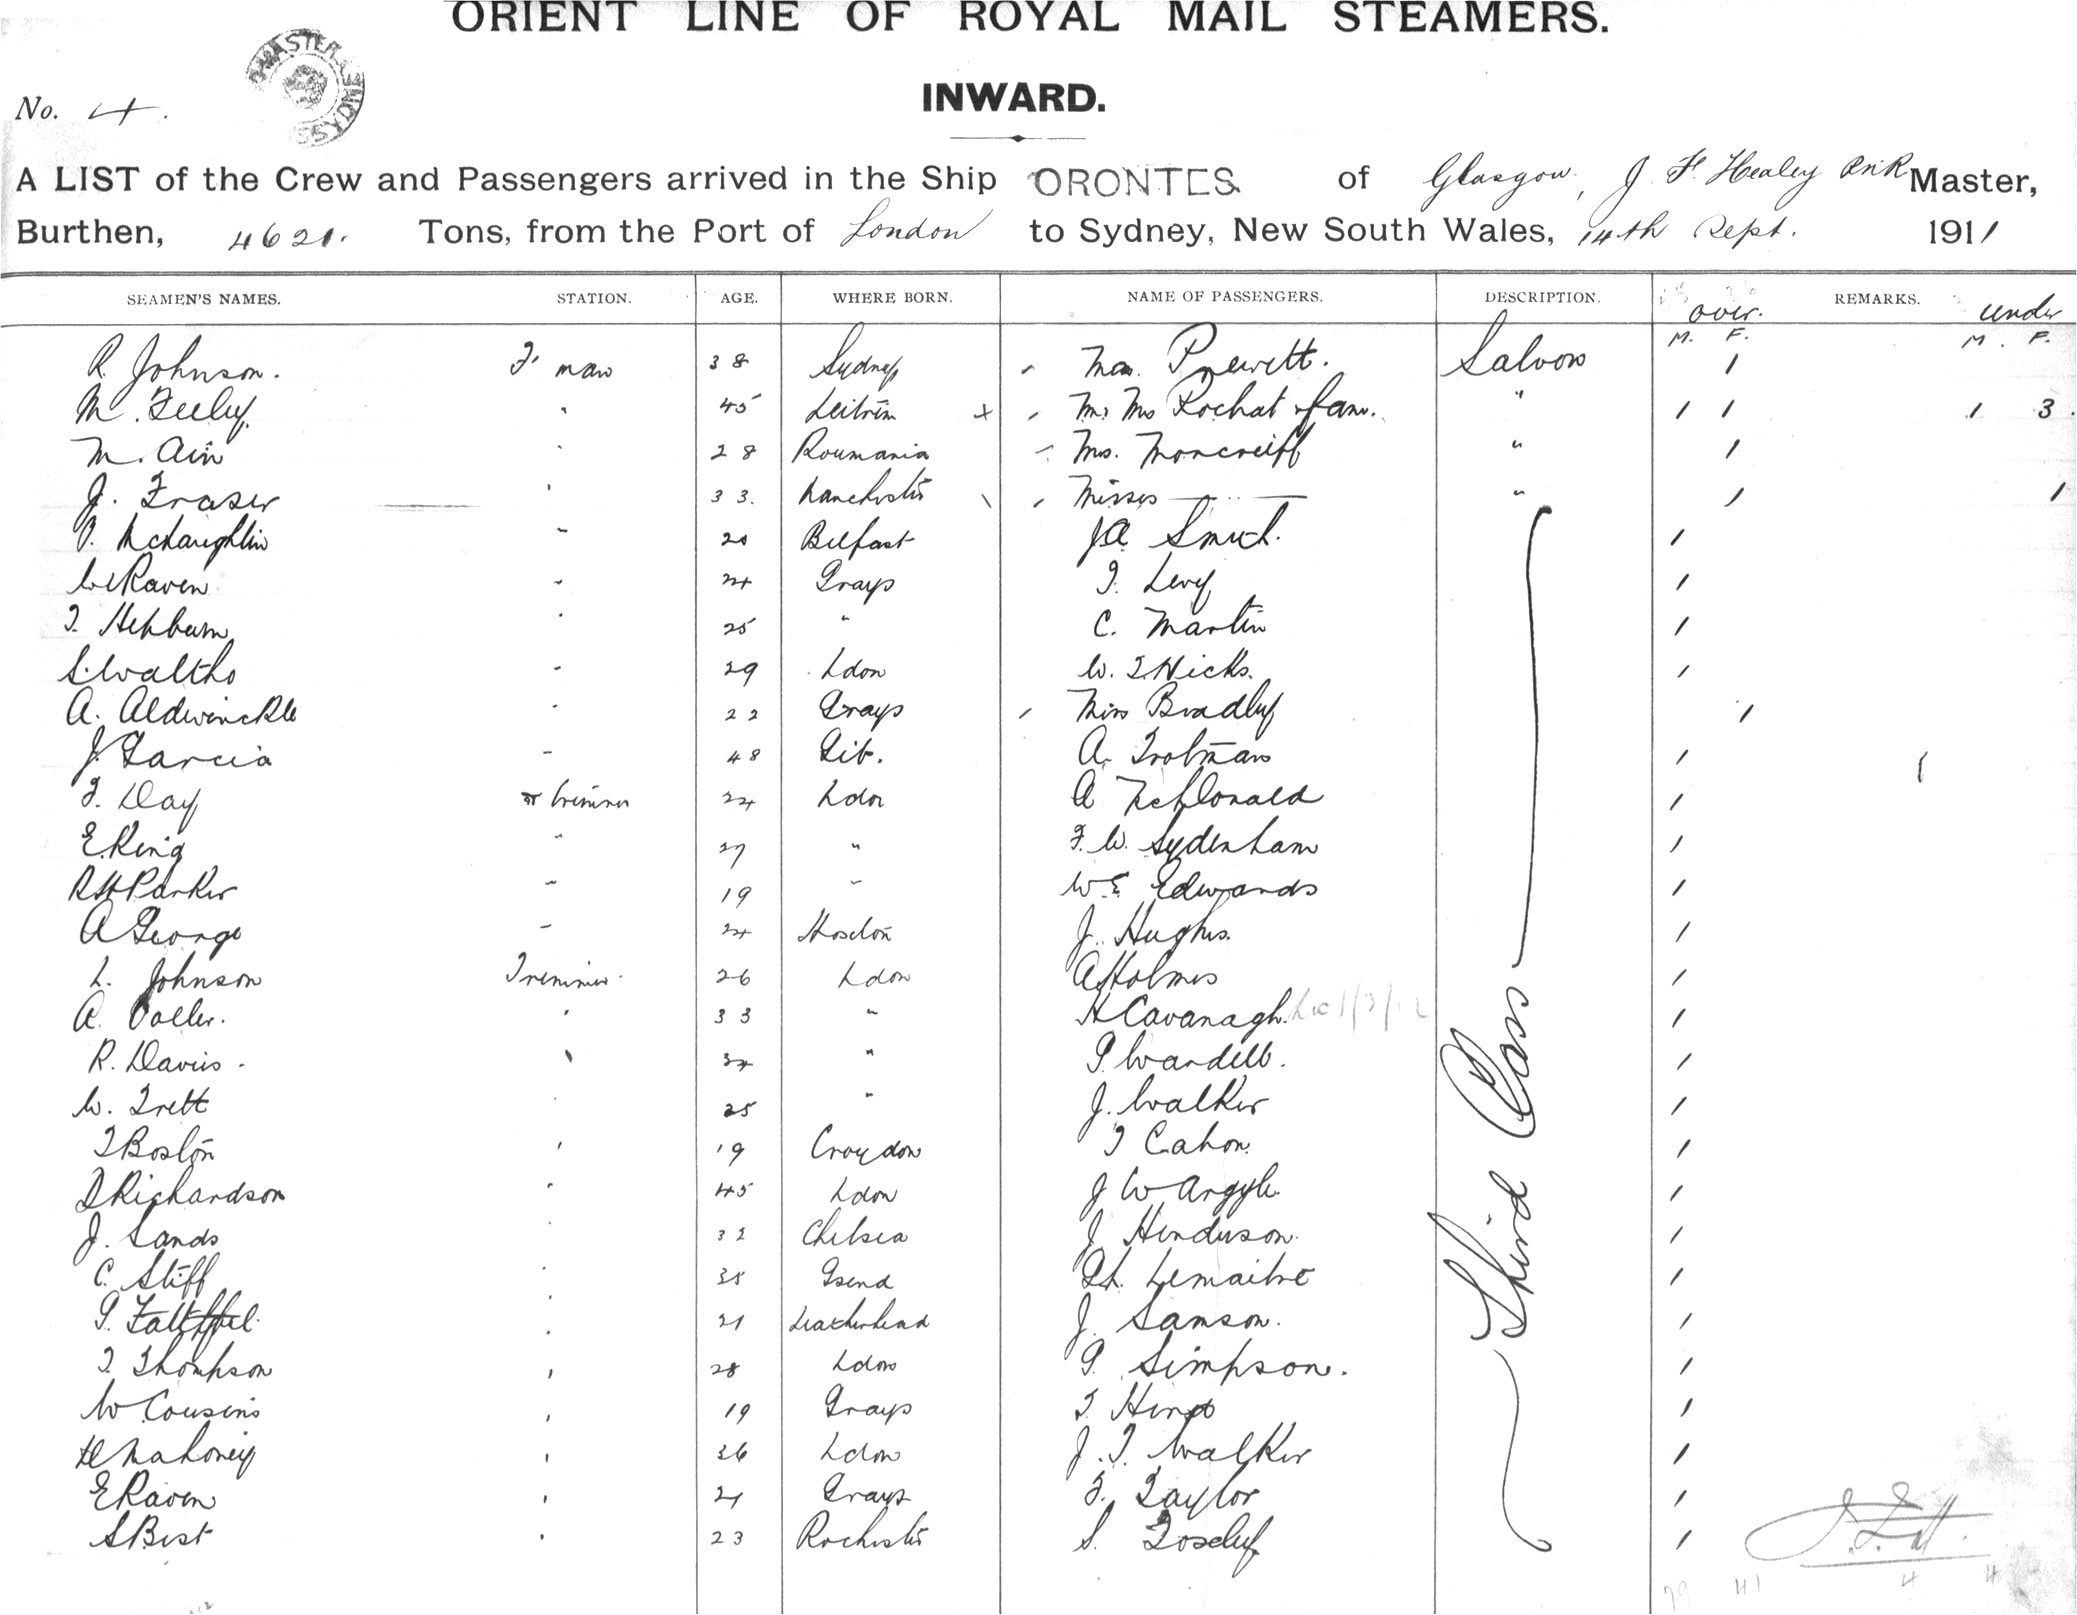 ORIENT LINE OF ROYAL MAIL STEAMERS.
INWARD.
No. 4.
A LIST of the Crew and Passengers arrived in the Ship ORONTES of Glasgow, J F Healey RNR Master,
Burthen, 4621. Tons, from the Port of London to Sydney, New South Wales, 14th Sept. 1911
SEAMEN'S NAMES. STATION. AGE. WHERE BORN. NAME OF PASSENGERS. DESCRIPTION. over. REMARKS. under
M. F. M. F.
R. Johnson. F' man 38 Sydney Prewitt. Saloon 1
M. Feeley. " 45 Leitrim x Mr Mrs Rochat & fam. " 1 1 1 3
M. Ain " 28 Roumania Mrs. Moncreiff " 1
J. Fraser " 33. Manchester Misses — " — " 1 1
McLaughlin " Belfast JA Smith. 1
W Raven " 24 Grays Levy 1
T. Hepburn " 25 " C. Martin 1
S. Waltho " 29 Ldon W. T Hicks. 1
A. Aldwinckle " 22 Grays Miss Bradley 1
J. Garcia " 48 Gib. A. Trotman 1
F. Day trimmer 24 Ldon A McDonald 1
E. King " 27 " F. W. Sydenham 1
RH Parker " 19 " W E Edwards 1
A George " 24 J. Hughes. 1
L. Johnson Trimmer. 26 Ldon A Holmes 1
A. " 33 " H Cavanagh. 1
R. Davis. " 34 " Wardell. 1
W. Trett " 25 " J. Walker 1
T Boston " 19 Croydon T Cahon. 1
D Richardson " 45 Ldon J W Argyle. 1
J. Sands " 32 Chelsea J Henderson. 1
C. Stiff " 35 Gsend Lemaitre 1
G. " 21 Leatherhead J. Samson. 1
T. Thompson " 28 Ldon G. Simpson. 1
W Cousins " 19 Grays T 1
Mahoney " 36 Ldon J. T. Walker 1
E Raven " 21 Grays F. Taylor 1
S Best " 23 Rochester S. Toseley 1
Third Class
79 41 4 4